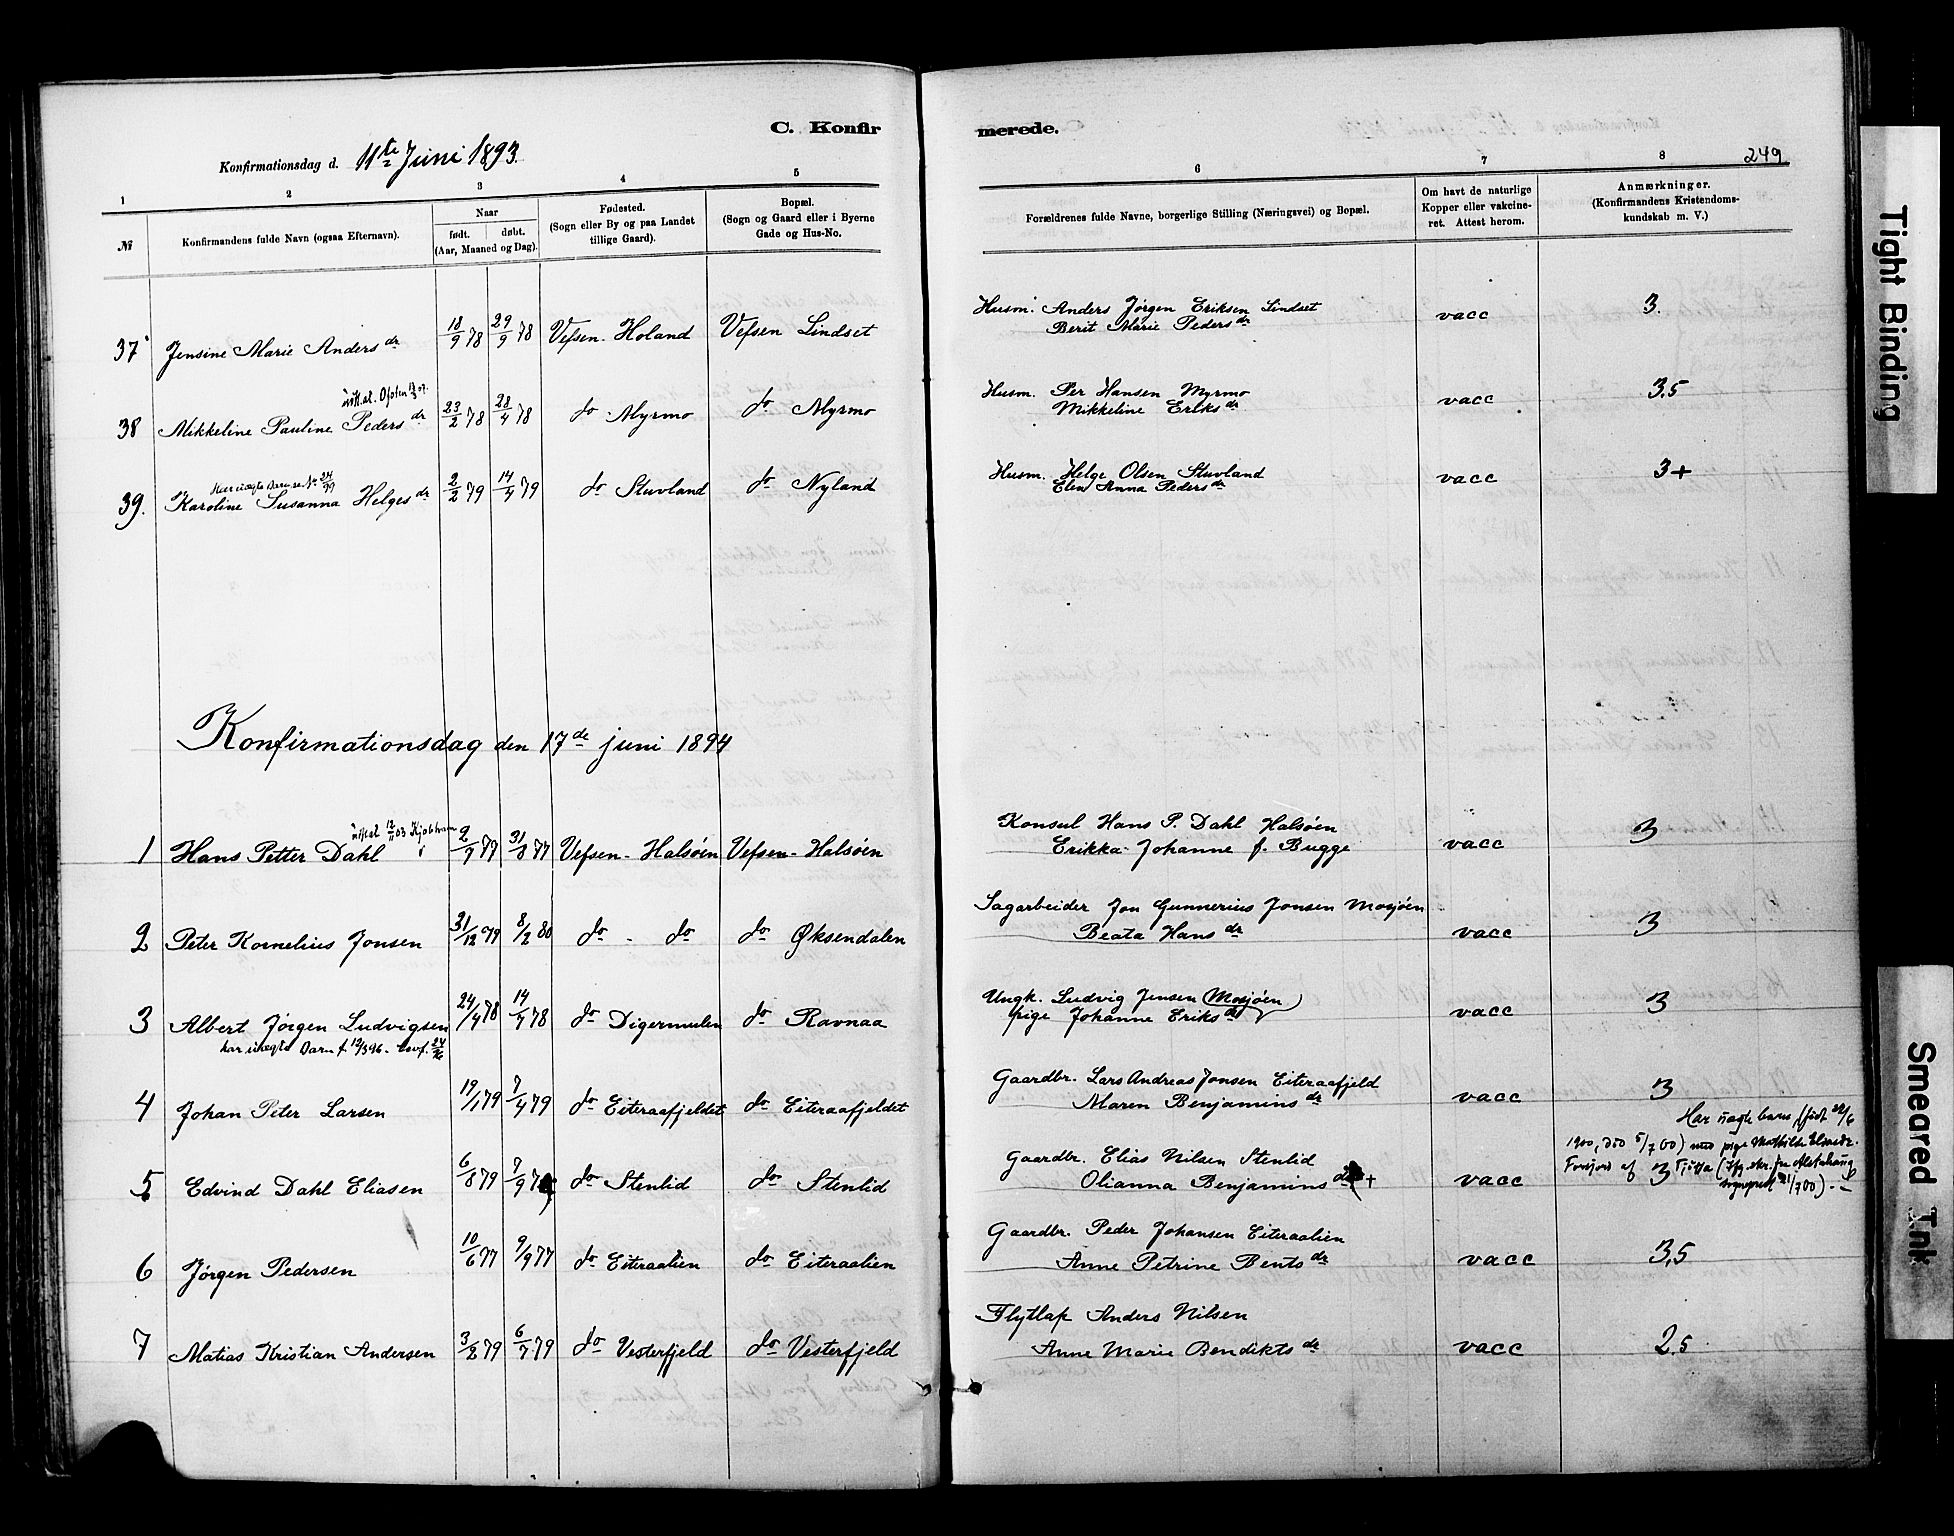 C. Konfirmerede.
Konfirmationsdag d. 11te Juni 1893.
249
1 2 3 4 5 6 7 8
№ Konfirmandens fulde Navn (ogsaa Efternavn). Naar født. døbt. (Aar, Maaned og Dag). Fødested. (Sogn eller By og paa Landet tillige Gaard). Bopæl. (Sogn og Gaard eller i Byerne Gade og Hus-No. Forældrenes fulde Navne, borgerlige Stilling (Næringsvei) og Bopæl. Om havt de naturlige Kopper eller vakcineret. Attest herom. Anmærkninger. (Konfirmandens Kristendomskundskab m. V.)
37 Jensine Marie Andersdr 18/9 78 29/9 78 Vefsen Holand Vefsen Lindset Husm. Anders Jørgen Eriksen Lindset vacc 3.
Berit Marie Pedersdr
38 Mikkeline Pauline Pedersdr 23/2 78 28/4 78 do Myrmo do Myrmo Husm. Per Hansen Myrmo vacc 3,5
Mikkeline Eriksdr
39. Karoline Susanna Helgesdr 2/2 79 14/4 79 do Stuvland do Nyland Husm. Helge Olsen Stuvland vacc 3+
Elen Anna Pedersdr
Konfirmationsdag den 17de juni 1894
1 Hans Petter Dahl Vefsen - Halsøen Vefsen - Halsøen Konsul Hans P. Dahl Halsøen vacc 3
Erikka Johanne f. Bugge
2 Peter Kornelius Jonsen 31/12 79 8/2 80 do - do do Øksendalen Sagarbeider Jon Gunnerius Jonsen Mosjøen vacc 3
Beata Hansdr
3 Albert Jørgen Ludvigsen 24/4 78 14/7 78 do Digermulen do Ravnaa Ungk. Ludvig Jensen Mosjøen vacc 3
pige Johanne Eriksdr
har uægte Barn f. 12/3 96
4 Johan Peter Larsen 19/1 79 7/4 79 do Eiteraafjeldet do Eiteraafjeldet Gaardbr. Lars Andreas Jonsen Eiteraafjeld vacc 3
Maren Benjaminsdr
Har uægte barn (født
1900, død 5/7 00) med pige Mathilde
5 Edvind Dahl Eliasen 6/8 79 7/9 do Stenlid do Stenlid Gaardbr. Elias Nilsen Stenlid vacc 3
Olianna Benjaminsdr +
6 Jørgen Pedersen 10/6 77 9/9 77 do Eiteraalien do Eiteraalien Gaardbr. Peder Johansen Eiteraalien vacc 3,5
Anne Petrine Bentsdr
7 Matias Kristian Andersen 3/2 79 6/7 79 do Vesterfjeld do Vesterfjeld Flytlap Anders Nilsen vacc 2,5
Anne Marie Bendiktsdr
Tight Binding
Smeared Ink